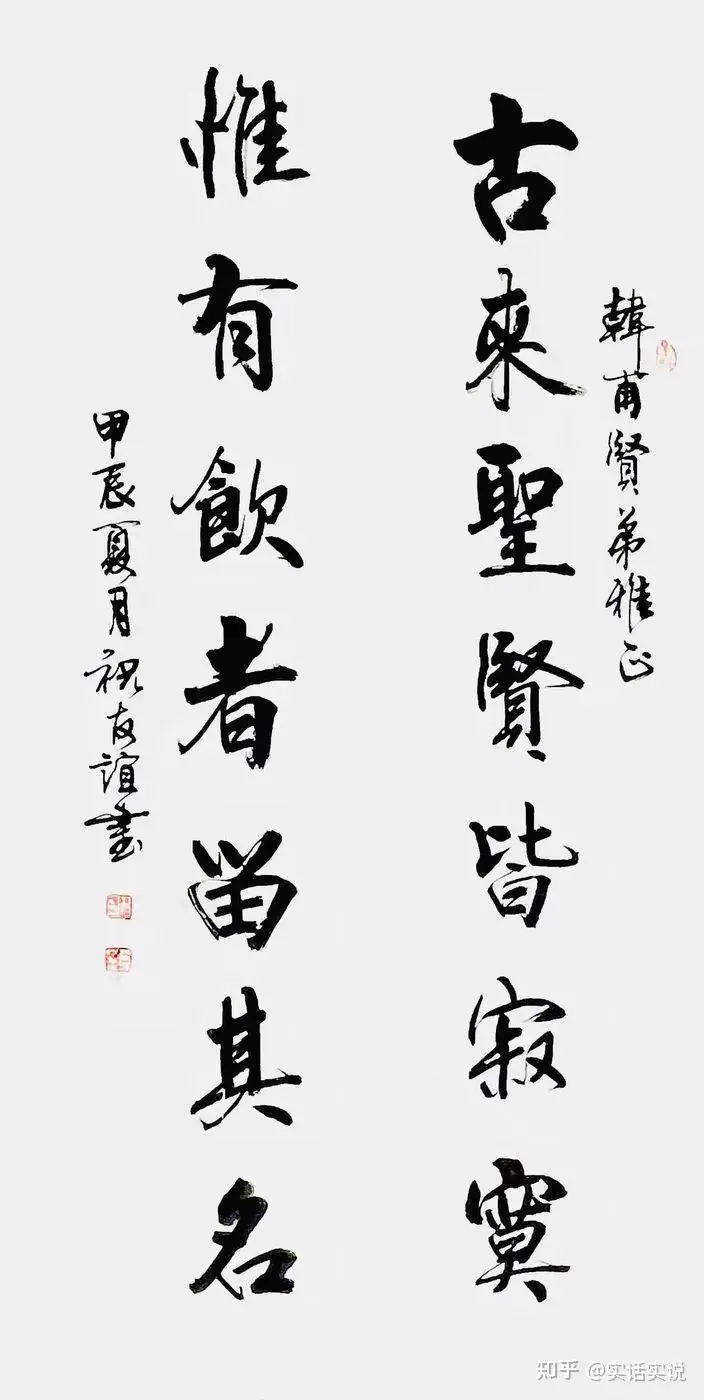 韓甫賢弟雅正
古來聖賢皆寂寞
惟有飲者留其名
甲辰夏月祝友誼書
知乎 @实话实说